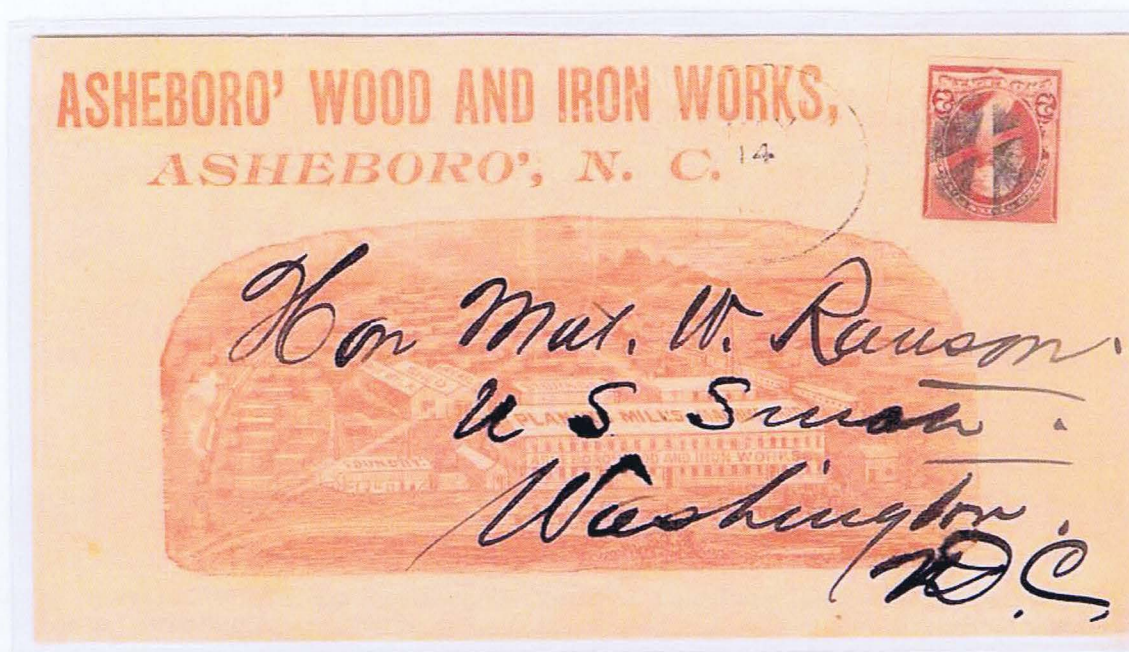 ASHEBORO' WOOD AND IRON WORKS,
ASHEBORO', N. C.
14
Hon Mat. W. Ransom.
U S Senate.
Washington.
D.C.
PLANING MILLS
FOUNDRY
ASHEBORO WOOD AND IRON WORKS
2 2